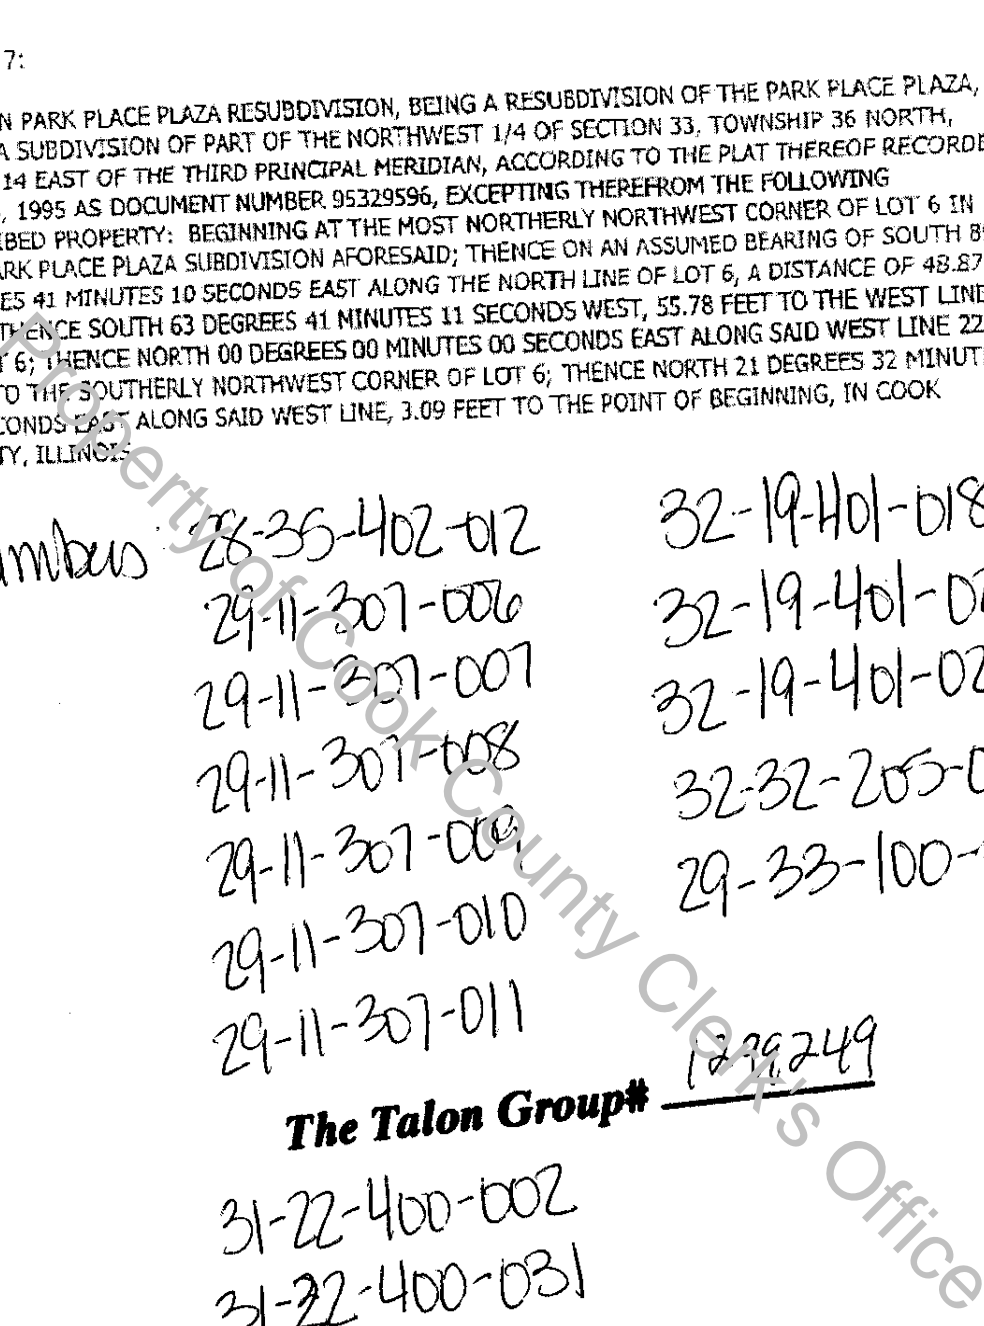 7:
N PARK PLACE PLAZA RESUBDIVISION, BEING A RESUBDIVISION OF THE PARK PLACE PLAZA,
A SUBDIVISION OF PART OF THE NORTHWEST 1/4 OF SECTION 33, TOWNSHIP 36 NORTH,
14 EAST OF THE THIRD PRINCIPAL MERIDIAN, ACCORDING TO THE PLAT THEREOF RECORDE
, 1995 AS DOCUMENT NUMBER 95329596, EXCEPTING THEREFROM THE FOLLOWING
BED PROPERTY: BEGINNING AT THE MOST NORTHERLY NORTHWEST CORNER OF LOT 6 IN
RK PLACE PLAZA SUBDIVISION AFORESAID; THENCE ON AN ASSUMED BEARING OF SOUTH 8
ES 41 MINUTES 10 SECONDS EAST ALONG THE NORTH LINE OF LOT 6, A DISTANCE OF 48.87
THENCE SOUTH 63 DEGREES 41 MINUTES 11 SECONDS WEST, 55.78 FEET TO THE WEST LINE
T 6; THENCE NORTH 00 DEGREES 00 MINUTES 00 SECONDS EAST ALONG SAID WEST LINE 22
TO THE SOUTHERLY NORTHWEST CORNER OF LOT 6; THENCE NORTH 21 DEGREES 32 MINUT
CONDS EAST ALONG SAID WEST LINE, 3.09 FEET TO THE POINT OF BEGINNING, IN COOK
TY, ILLINOIS
umbers 28-35-402-012
29-11-307-006
29-11-307-007
29-11-307-008
29-11-307-009
29-11-307-010
29-11-307-011
32-19-401-018
32-19-401-02
32-19-401-02
32-32-205-0
29-33-100-
The Talon Group# 1299249
31-22-400-002
31-22-400-031
Property of Cook County Clerk's Office